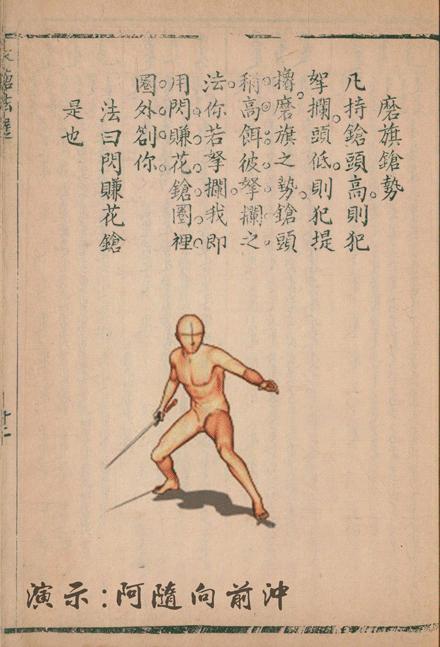 磨旗鎗勢
凡持鎗頭高則犯
拏攔頭低則犯提
擼磨旗之勢鎗頭
稍高餌彼拏攔之
法你若拏攔我即
用閃賺花鎗圈裡
圈外劄你
法曰閃賺花鎗
是也
十二
演示:阿隨向前沖